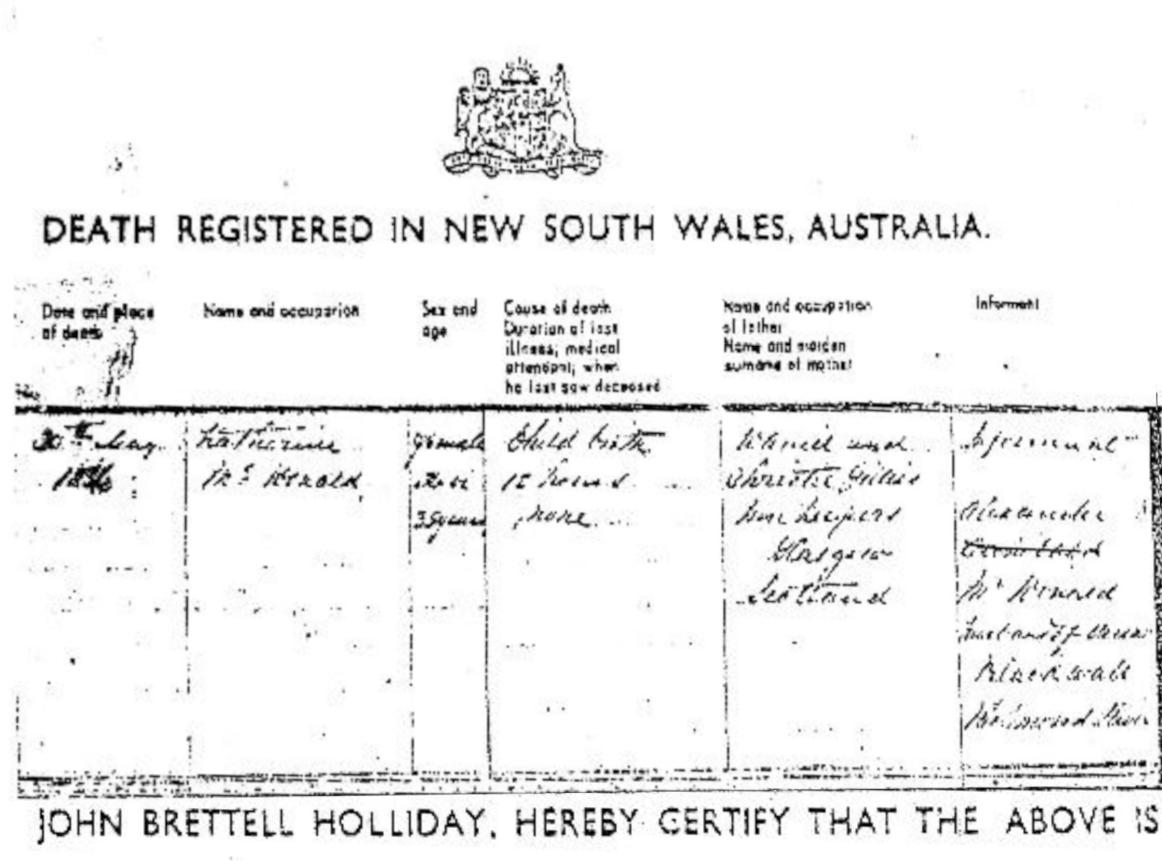 DEATH REGISTERED IN NEW SOUTH WALES, AUSTRALIA.
Date and place
of death
Name and occupation
Sex and
age
Cause of death
Duration of last
illness; medical
attendant; when
he last saw deceased
Name and occupation
of father
Name and maiden
surname of mother
Informant
30th May
Katherine
McDonald
Female
35 years
Child birth
12 hours
none
and
Christie Gillies
Glasgow
Scotland
Alexander
McDonald
Blackwall
JOHN BRETTELL HOLLIDAY, HEREBY CERTIFY THAT THE ABOVE IS